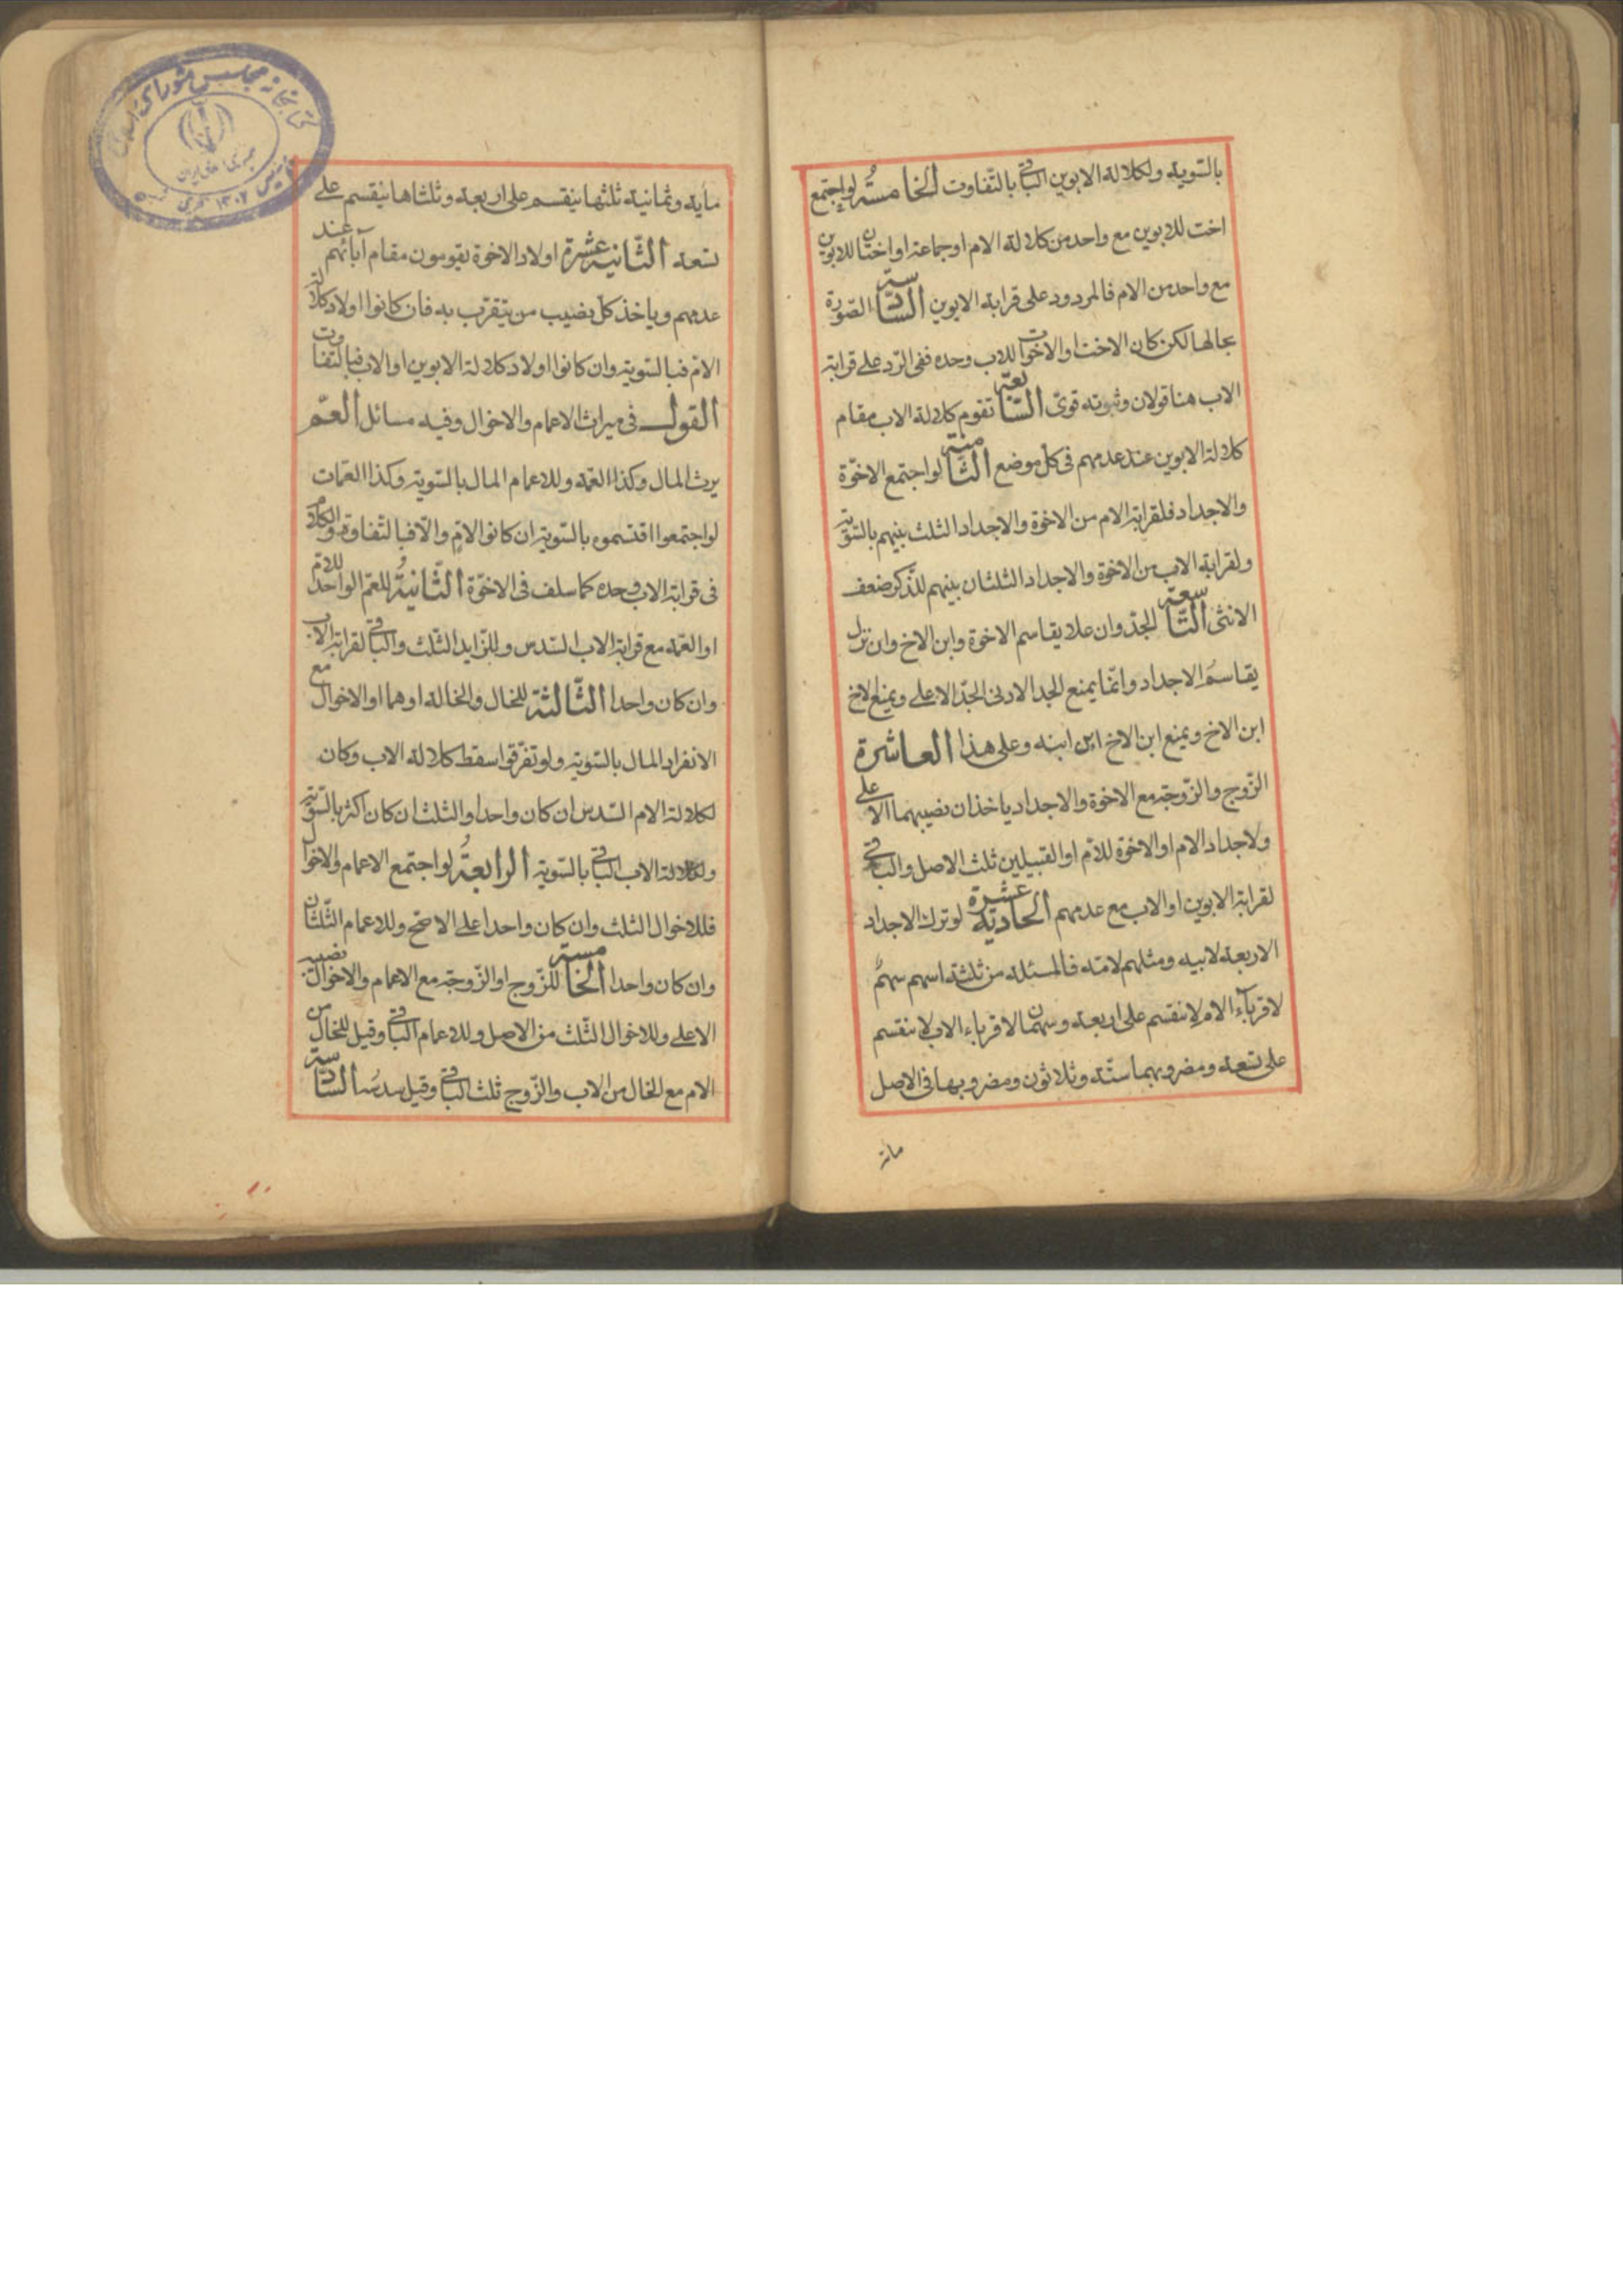 بالسّوية ولكلالة الابوين الباقى بالتّفاوت الخامسة لو اجتمع
اخت للابوين مع واحد من كلالة الام او جماعة او اختان للابوين
مع واحد من الام فالمردود على قرابة الابوين السّادسة الصّورة
بحالها لكن كان الاخت او الاخوات للاب وحده ففى الرّد على قرابة
الاب هنا قولان وثبوته قوىّ السّابعة تقوم كلالة الاب مقام
كلالة الابوين عند عدمهم فى كل موضع الثّامنة لو اجتمع الاخوّة
والاجداد فلقرابة الام من الاخوة والاجداد الثلث بينهم بالسّويّة
ولقرابة الاب من الاخوة والاجداد الثلثان بينهم للذّكر ضعف
الانثى التّاسعة الجدّ وان علا يقاسم الاخوة وابن الاخ وان نزل
يقاسم الاجداد وانّما يمنع الجد الادنى الجدّ الاعلى ويمنع الاخ
ابن الاخ ويمنع ابن الاخ ابن ابنه وعلى هذا العاشرة
الزّوج والزّوجة مع الاخوة والاجداد ياخذان نصيبهما الاعلى
ولاجداد الام او الاخوة للامّ او القبيلين ثلث الاصل والباقى
لقرابة الابوين او الاب مع عدمهم الحادية عشرة لو ترك الاجداد
الاربعة لابيه ومثلهم لامّه فالمسئلة من ثلثة اسهم سهمٌ
لاقرباء الام لا ينقسم على اربعة وسهمان لاقرباء الاب لا ينقسم
على تسعة ومضروبهما ستّة وثلاثون ومضروبها فى الاصل
مائة
مأية وثمانية ثلثها ينقسم على اربعة وثلثاها ينقسم على
تسعة الثّانية عشرة اولاد الاخوة يقومون مقام آبائهم عند
عدمهم وياخذ كل نصيب من يتقرب به فان كانوا اولاد كلالة
الامّ فبالسّوية وان كانوا اولاد كلالة الابوين او الاب فبالتفاوت
القول فى ميراث الاعمام والاخوال وفيه مسائل العمّ
يرث المال وكذا العمّة وللاعمام المال بالسّوية وكذا العمّات
لو اجتمعوا اقتسموه بالسّوية ان كانوا لامٍّ والّا فبالتّفاوت والكلام
فى قرابة الاب وحده كما سلف فى الاخوّة الثّانية للعمّ الواحد للامّ
او العمّة مع قرابة الاب السّدس وللزّايد الثّلث والباقى لقرابة الاب
وان كان واحدا الثّالثة للخال والخالة او هما او الاخوال مع
الانفراد المال بالسّوية ولو تفرّقوا سقط كلالة الاب وكان
لكلالة الام السّدس ان كان واحدا والثلث ان كان اكثر بالسّويّة
ولكلالة الاب الباقى بالسّوية الرابعة لو اجتمع الاعمام والاخوال
فللاخوال الثلث وان كان واحدا على الاصحّ وللاعمام الثّلثان
وان كان واحدا الخامسة للزّوج او الزّوجة مع الاعمام والاخوال نصيبه
الاعلى وللاخوال الثّلث من الاصل وللاعمام الباقى وقيل للخال من
الام مع الخال من الاب والزّوج ثلث الباقى وقيل سدسُه السّادسة
كتابخانه مجلس شورای اسلامی